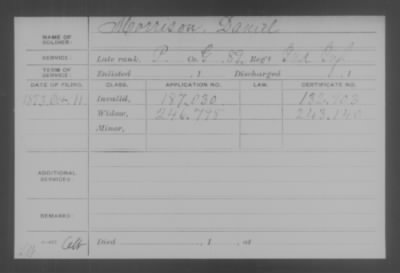 NAME OF SOLDIER: Morrison, Daniel
SERVICE: Late rank, P. Co. G, 82, Reg't Ind Inf
TERM OF SERVICE: Enlisted , 1 Discharged , 1
DATE OF FILING. CLASS. APPLICATION NO. LAW. CERTIFICATE NO.
1873, 11 Invalid, 187.030 132.203
Widow, 246.798 243.140
Minor,
ADDITIONAL SERVICES:
REMARKS:
Died , 1 , at